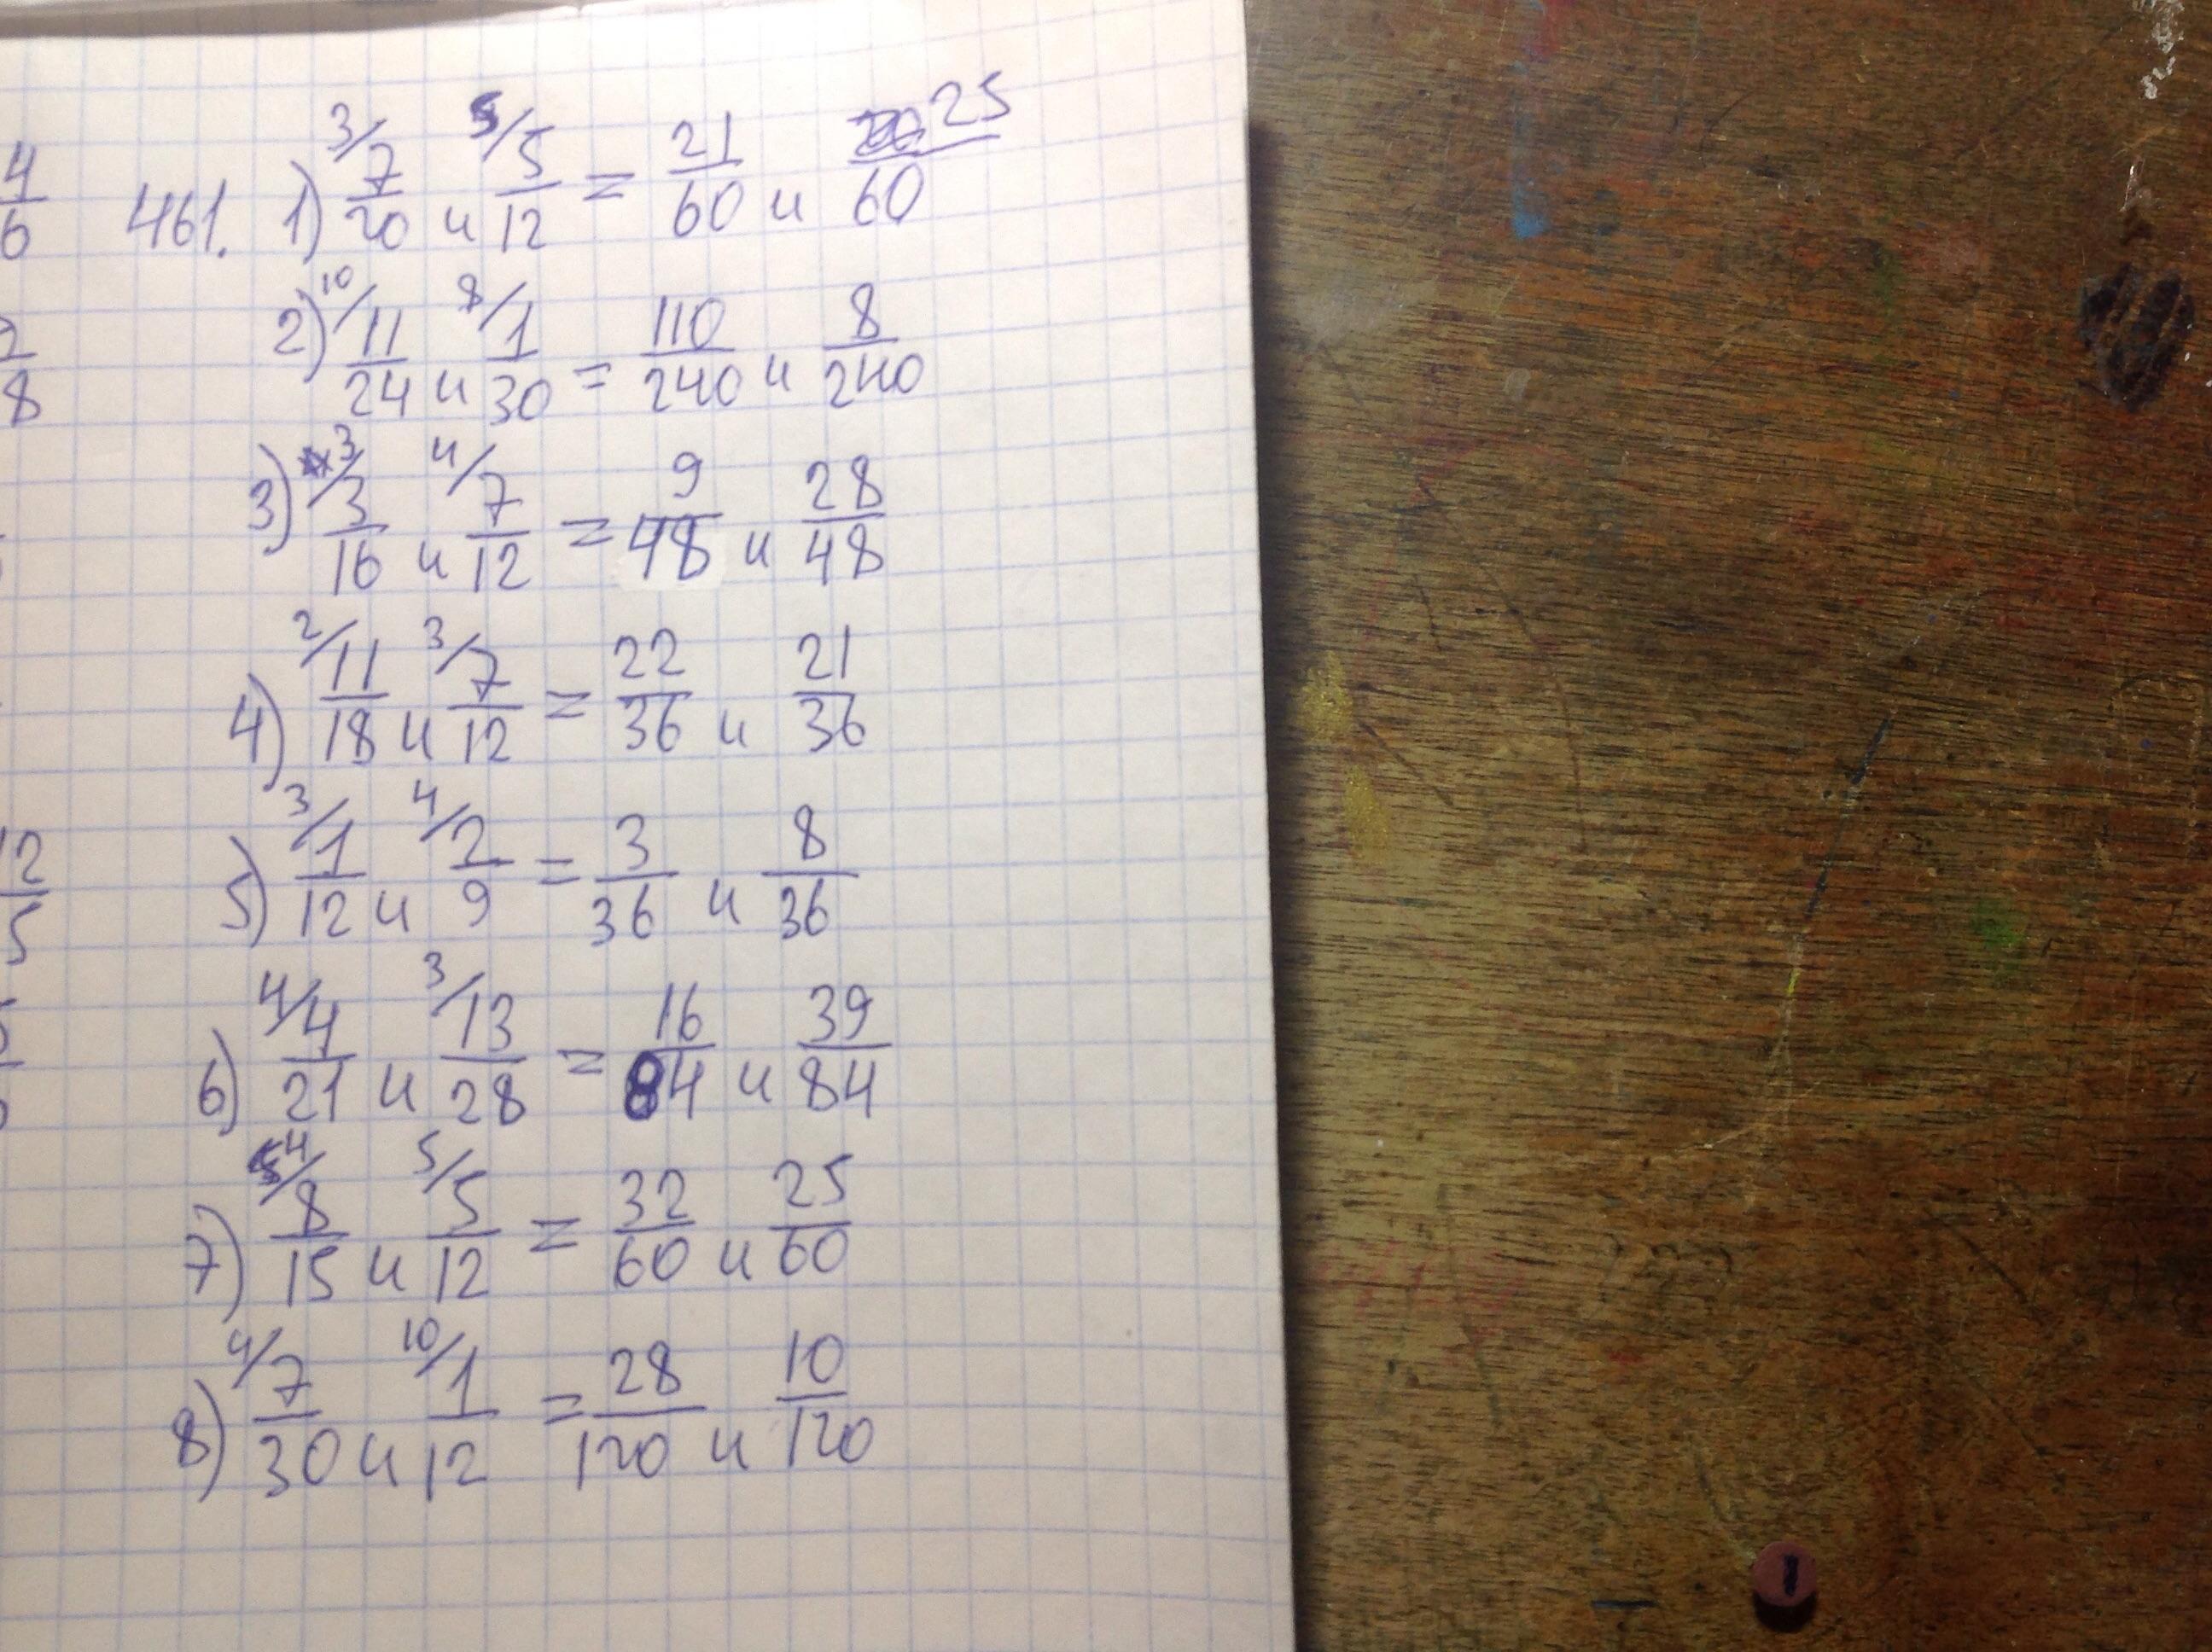 461. 1) 3/ 7/20 и 5/ 5/12 = 21/60 и 25/60
2) 10/ 11/24 и 8/ 1/30 = 110/240 и 8/240
3) 3/ 3/16 и 4/ 7/12 = 9/48 и 28/48
4) 2/ 11/18 и 3/ 7/12 = 22/36 и 21/36
5) 3/ 1/12 и 4/ 2/9 = 3/36 и 8/36
6) 4/ 4/21 и 3/ 13/28 = 16/84 и 39/84
7) 4/ 8/15 и 5/ 5/12 = 32/60 и 25/60
8) 4/ 7/30 и 10/ 1/12 = 28/120 и 10/120